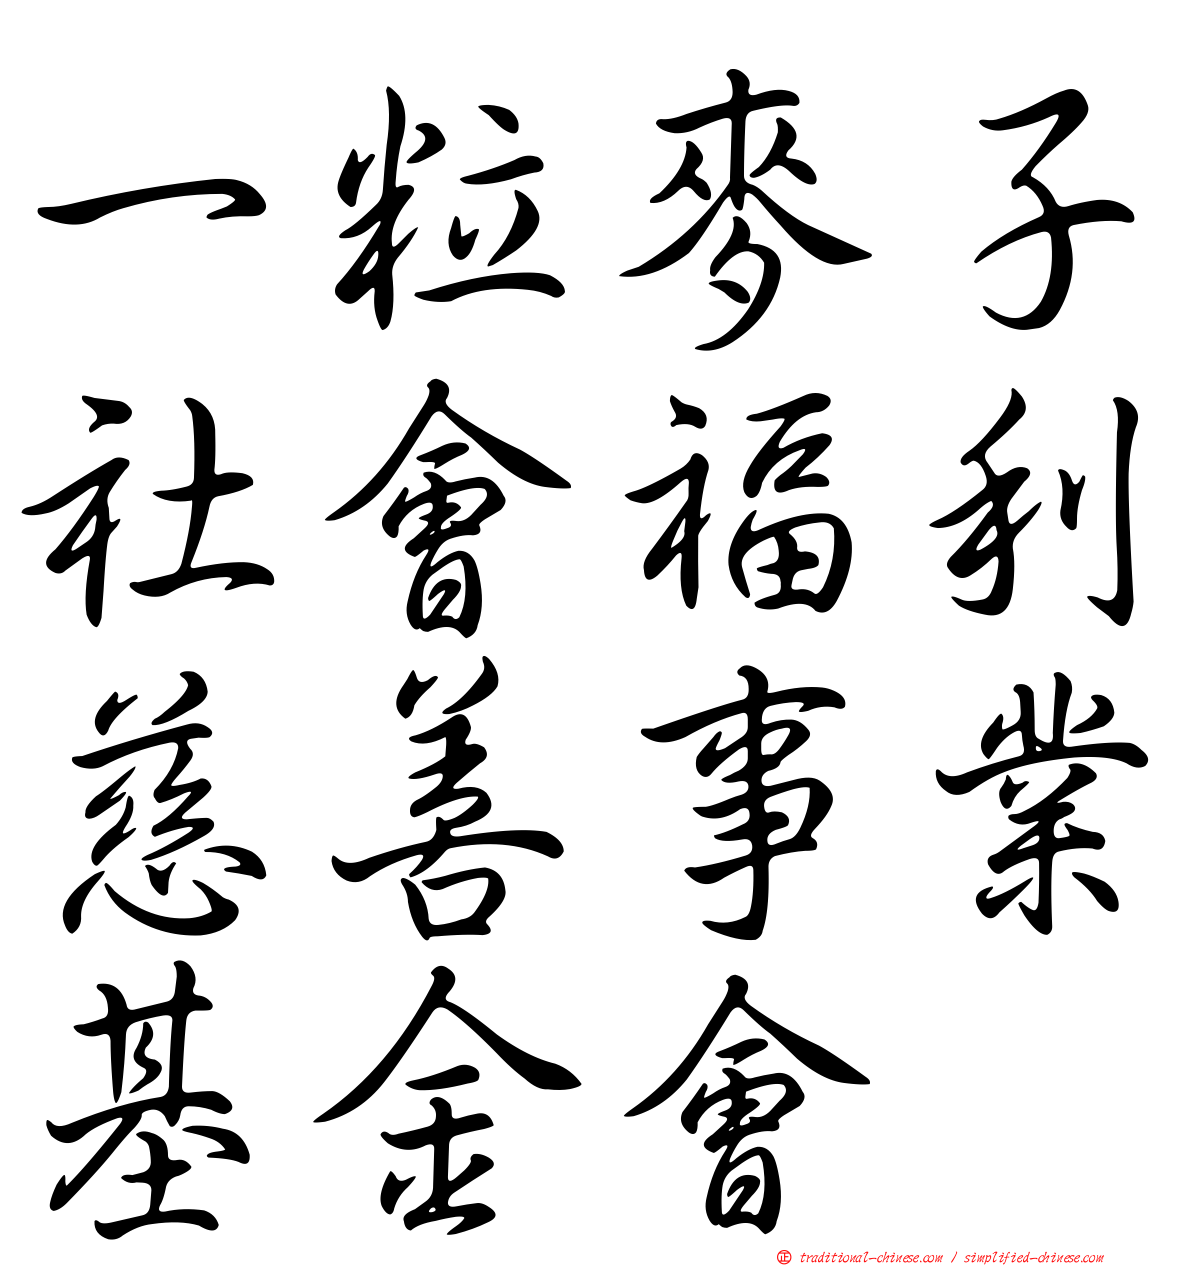 一粒麥子
社會福利
慈善事業
基金會
正 traditional-chinese.com / simplified-chinese.com